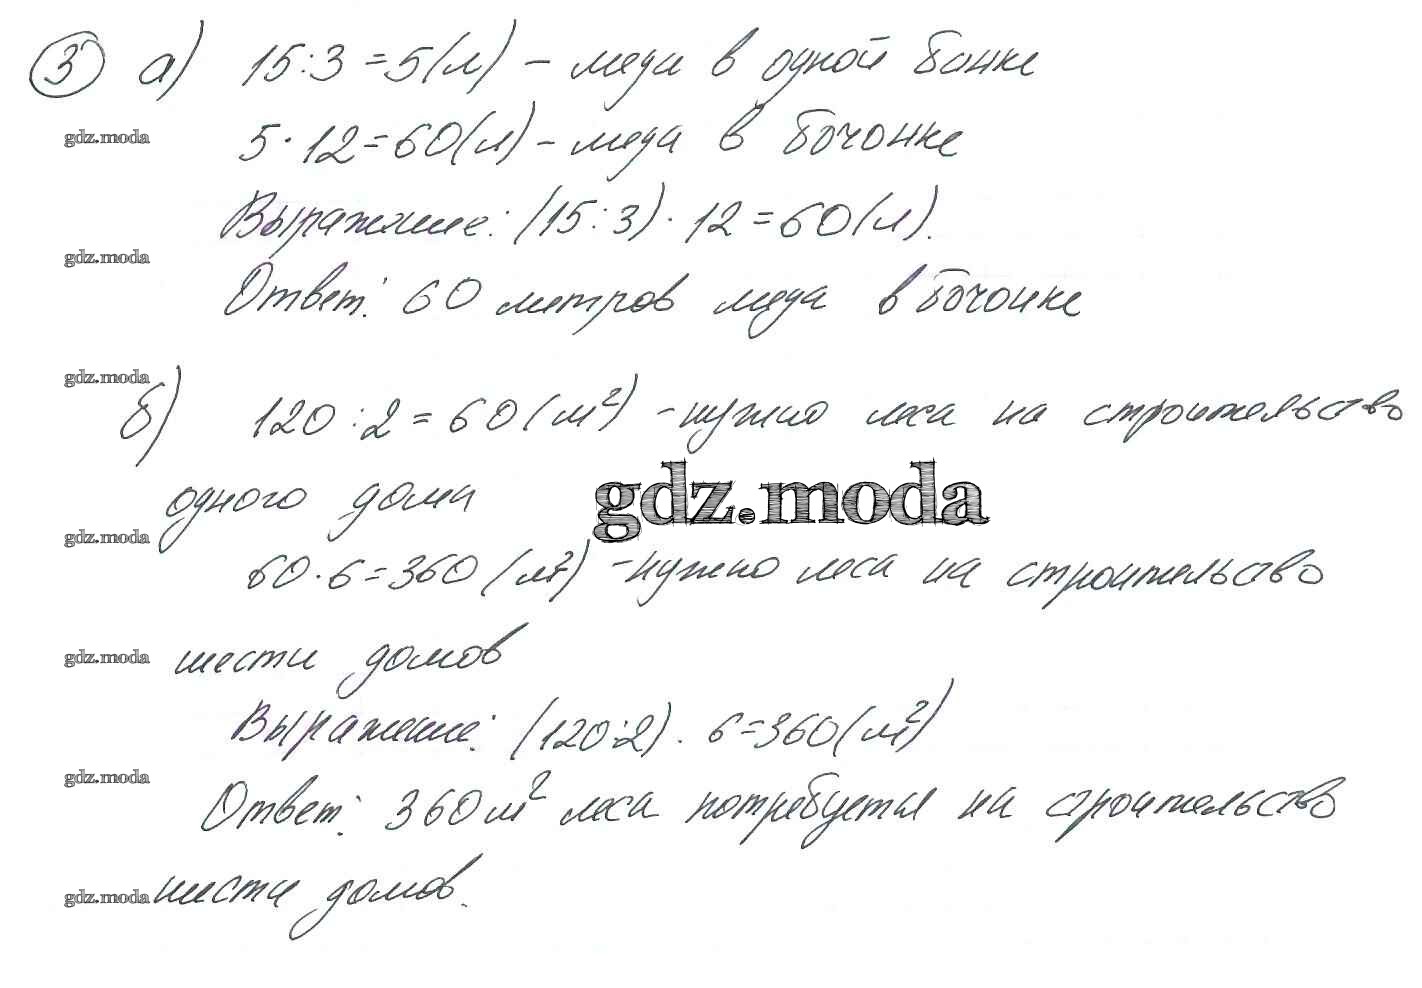 3 а) 15:3=5(л) – меда в одной банке
gdz.moda
5·12=60(л) – меда в бочонке
Выражение: (15:3)·12=60(л).
gdz.moda
Ответ: 60 литров меда в бочонке
gdz.moda
б) 120:2=60(м²) – нужно леса на строительство
gdz.moda
одного дома
gdz.moda
60·6=360(м²) – нужно леса на строительство
gdz.moda
шести домов
Выражение: (120:2)·6=360(м²)
gdz.moda
Ответ: 360м² леса потребуется на строительство
gdz.moda
шести домов.